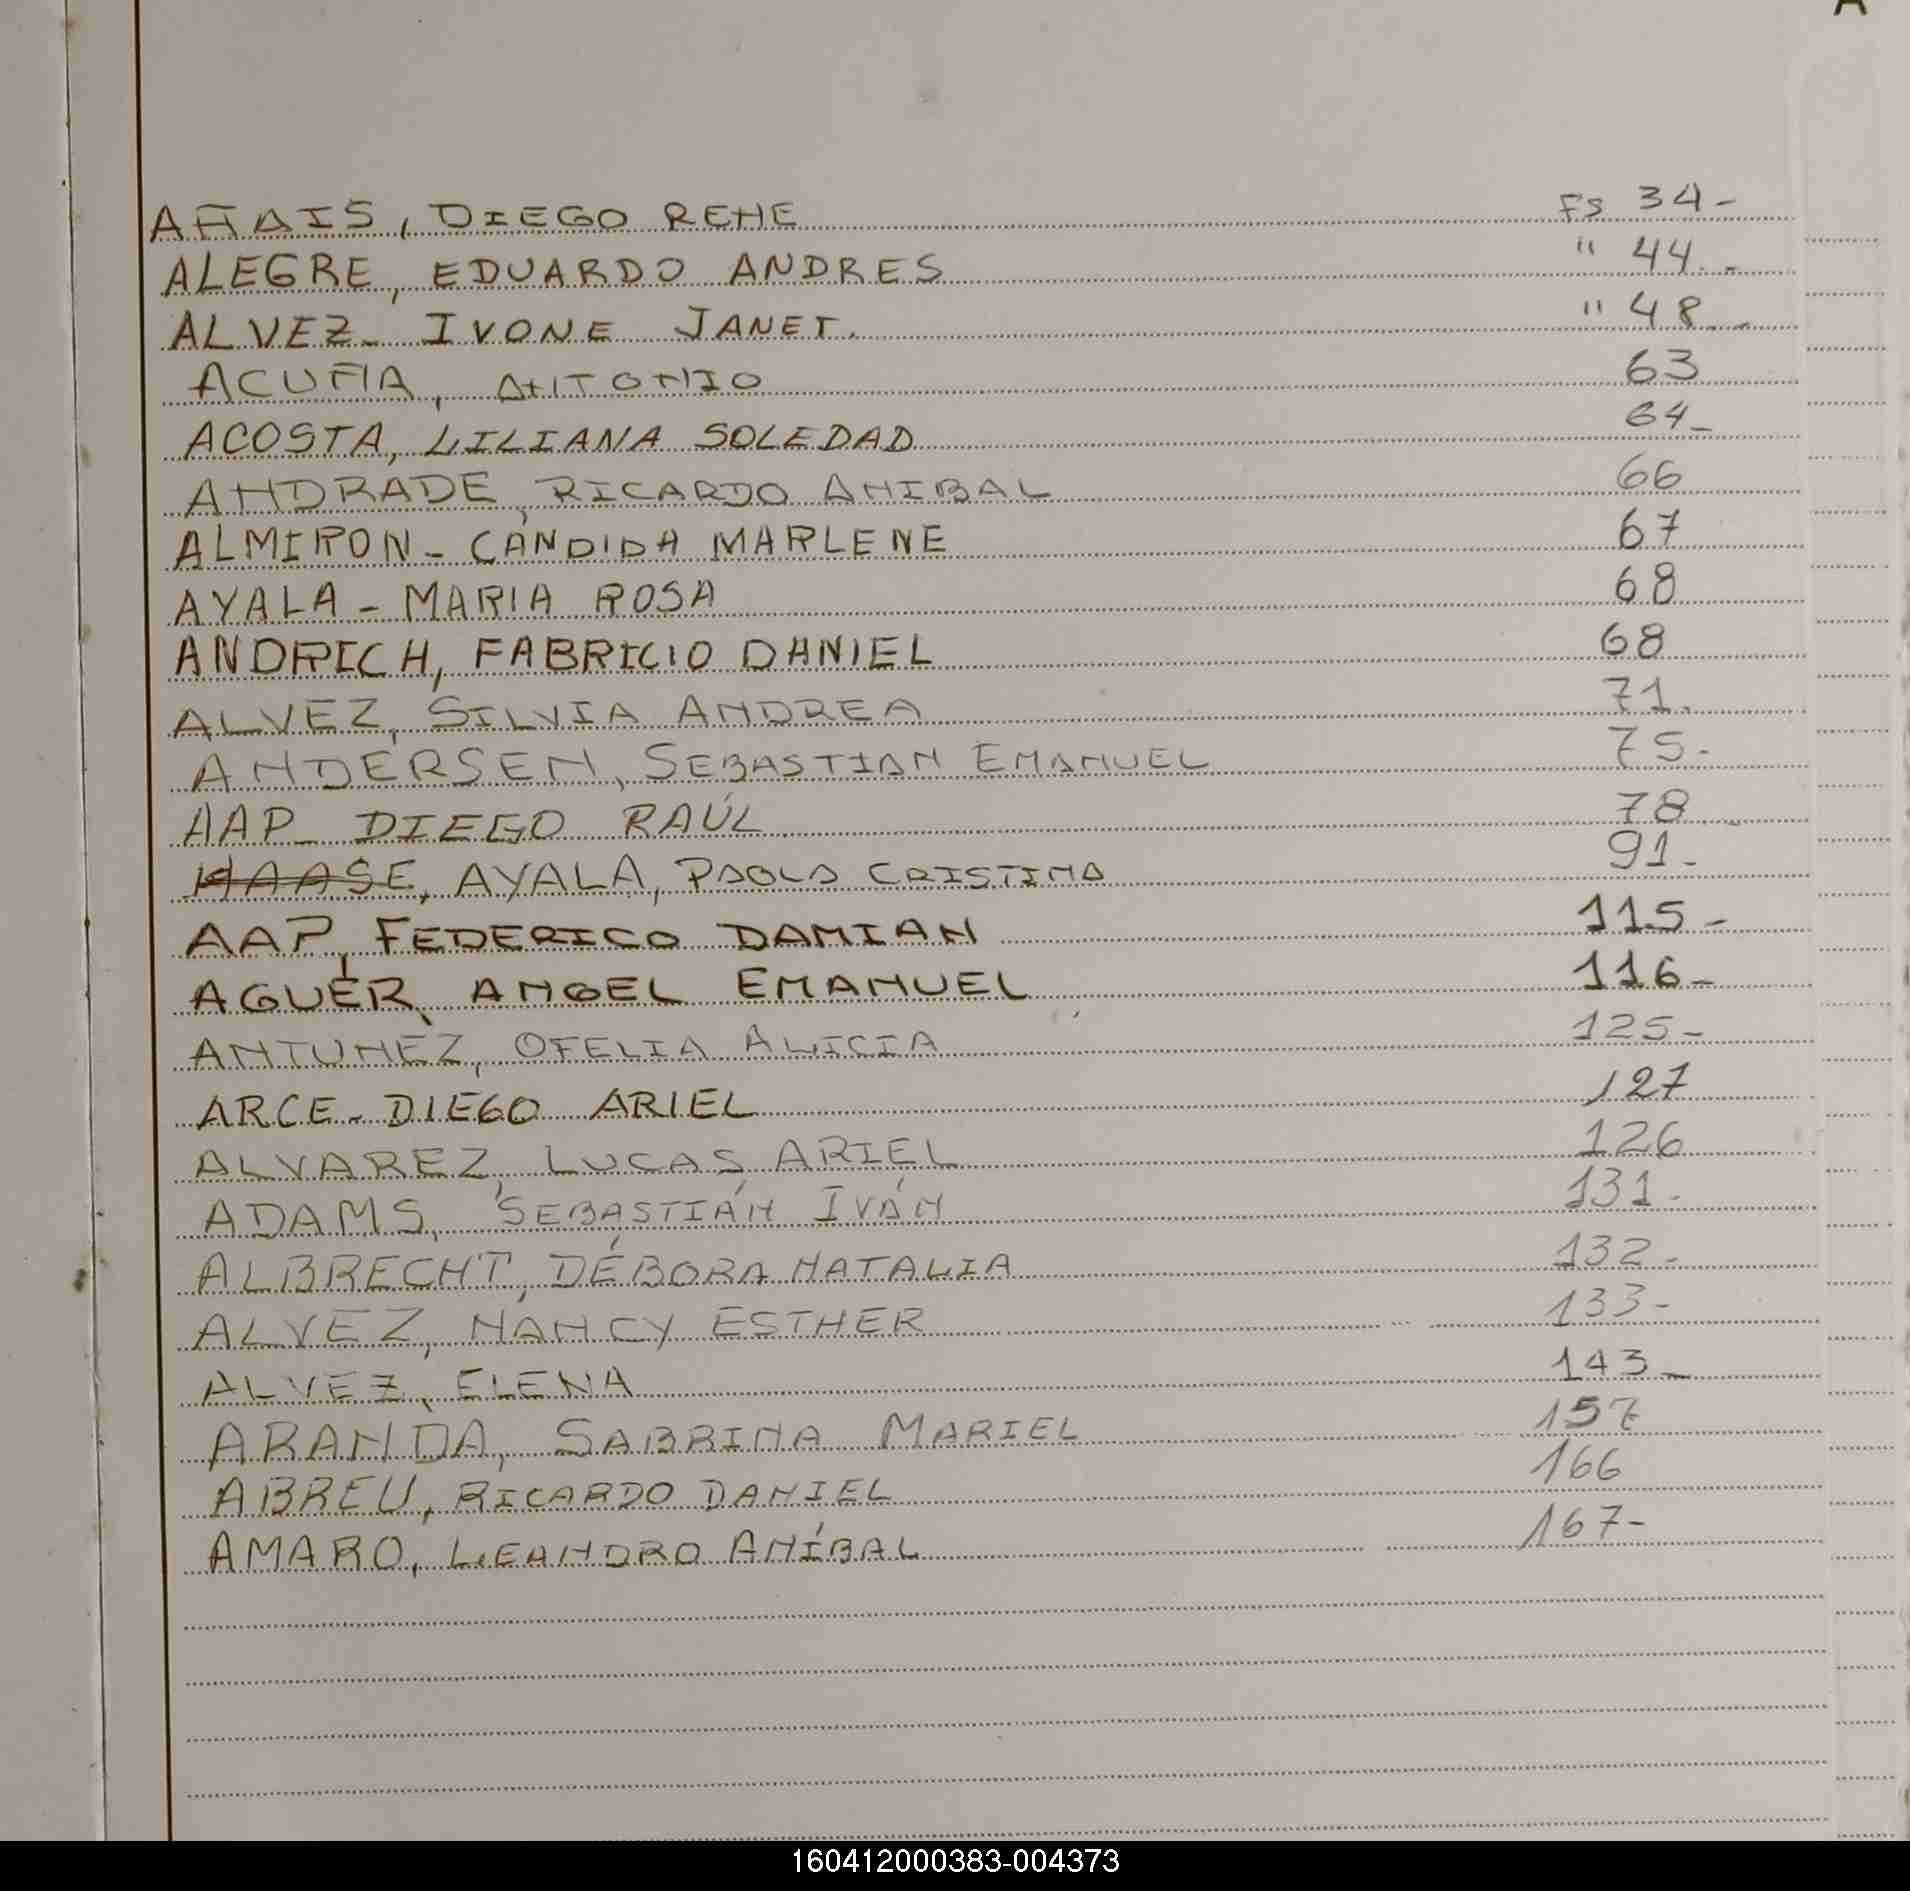 A
AÑAIS, DIEGO RENE FS 34-
ALEGRE, EDUARDO ANDRES " 44.-
ALVEZ- IVONE JANET. " 48.-
ACUÑA, ANTONIO 63
ACOSTA, LILIANA SOLEDAD 64-
ANDRADE, RICARDO ANIBAL 66
ALMIRON- CÁNDIDA MARLENE 67
AYALA- MARIA ROSA 68
ANDRICH, FABRICIO DANIEL 68
ALVEZ, SILVIA ANDREA 71.
ANDERSEN, SEBASTIAN EMANUEL 75-
AAP- DIEGO RAÚL 78.-
HAASE, AYALA, PAOLA CRISTINA 91-
AAP, FEDERICO DAMIAN 115-
AGUER, ANGEL EMANUEL 116-
ANTUNEZ, OFELIA ALICIA 125-
ARCE- DIEGO ARIEL 127
ALVAREZ, LUCAS ARIEL 126
ADAMS, SEBASTIÁN IVÁN 131-
ALBRECHT, DÉBORA NATALIA 132-
ALVEZ, NANCY ESTHER 133-
ALVEZ, ELENA 143-
ARANDA, SABRINA MARIEL 157
ABREU, RICARDO DANIEL 166
AMARO, LEANDRO ANÍBAL 167-
160412000383-004373